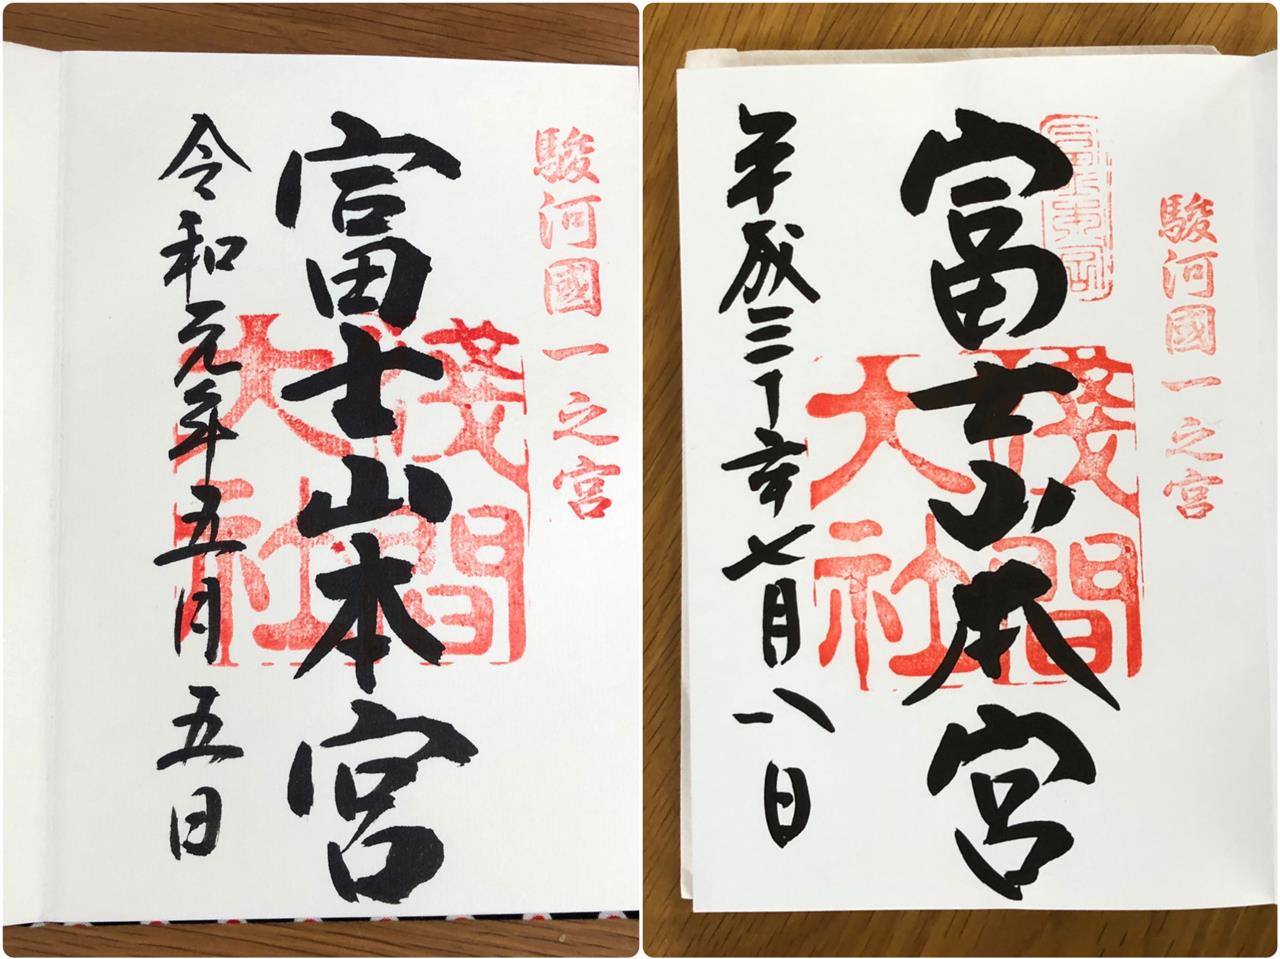 駿河國一之宮
富士山本宮
淺間
大社
令和元年五月五日
駿河國一之宮
富士山本宮
淺間
大社
平成三十年七月八日